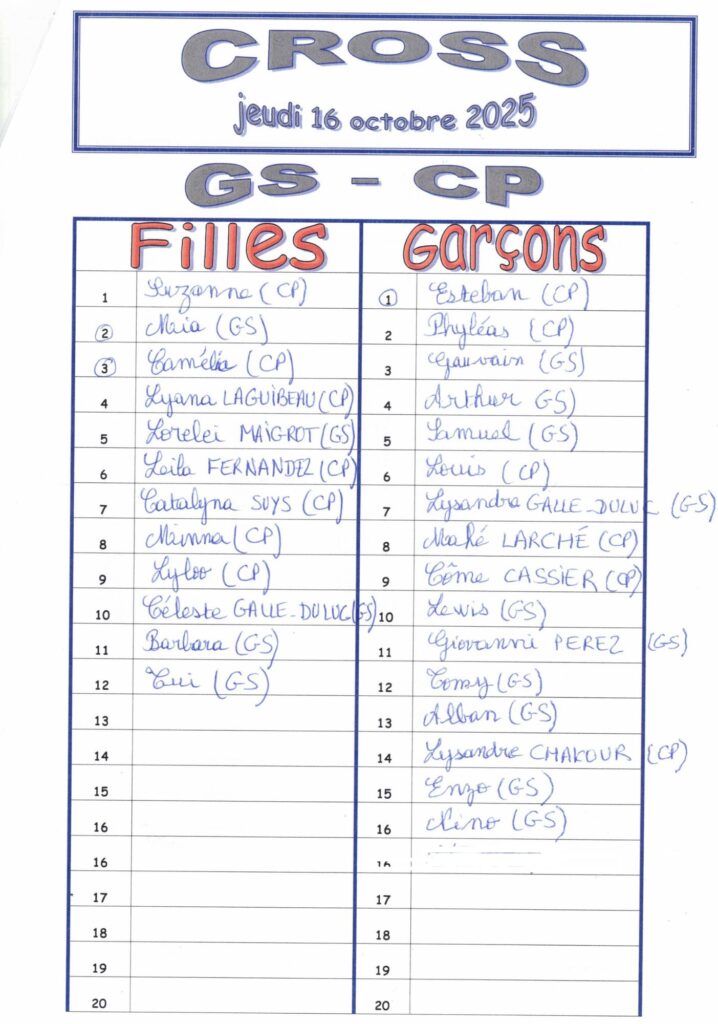 CROSS
jeudi 16 octobre 2025
GS - CP
Filles Garçons
1 Suzanne (CP) 1 Esteban (CP)
2 Maia (GS) 2 Phyléas (CP)
3 Camélia (CP) 3 Gauvain (GS)
4 Lyana LAGUIBEAU (CP) 4 Arthur GS)
5 Lorelei MAIGROT (GS) 5 Samuel (GS)
6 Leila FERNANDEZ (CP) 6 Louis (CP)
7 Catalyna SUYS (CP) 7 Lysandre GALLE-DULUC (GS)
8 Minna (CP) 8 Mahé LARCHÉ (CP)
9 Lyloo (CP) 9 Côme CASSIER (CP)
10 Céleste GALLE-DULUC (GS) 10 Lewis (GS)
11 Barbara (GS) 11 Giovanni PEREZ (GS)
12 (GS) 12 Tomy (GS)
13 13 Alban (GS)
14 14 Lysandre CHAKOUR (CP)
15 15 Enzo (GS)
16 16 Nino (GS)
16 16
17 17
18 18
19 19
20 20